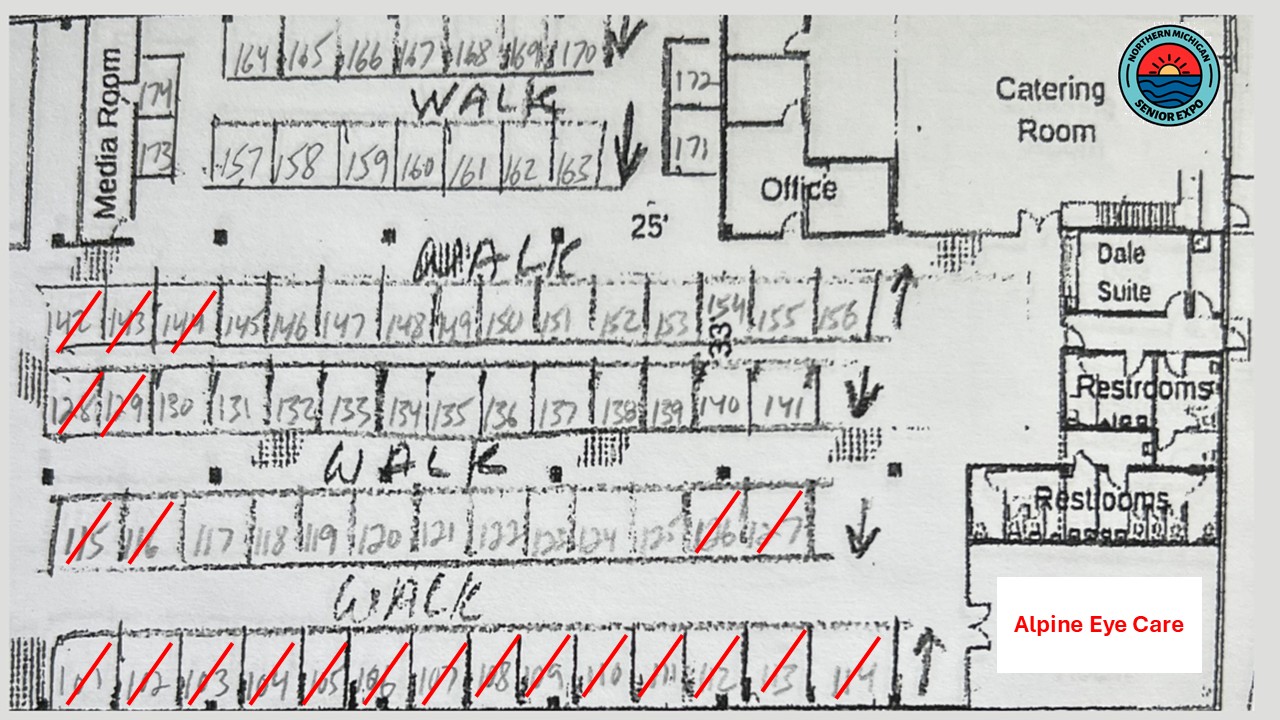 NORTHERN MICHIGAN
SENIOR EXPO
Media Room
164 165 166 167 168 169 170
174
172
WALK
Catering
Room
173
157 158 159 160 161 162 163
171
Office
25'
WALK
Dale
Suite
142 143 144 145 146 147 148 149 150 151 152 153 154 155 156
33
128 129 130 131 132 133 134 135 136 137 138 139 140 141
Restrooms
WALK
Restrooms
115 116 117 118 119 120 121 122 123 124 125 126 127
WALK
Alpine Eye Care
101 102 103 104 105 106 107 108 109 110 111 112 113 114